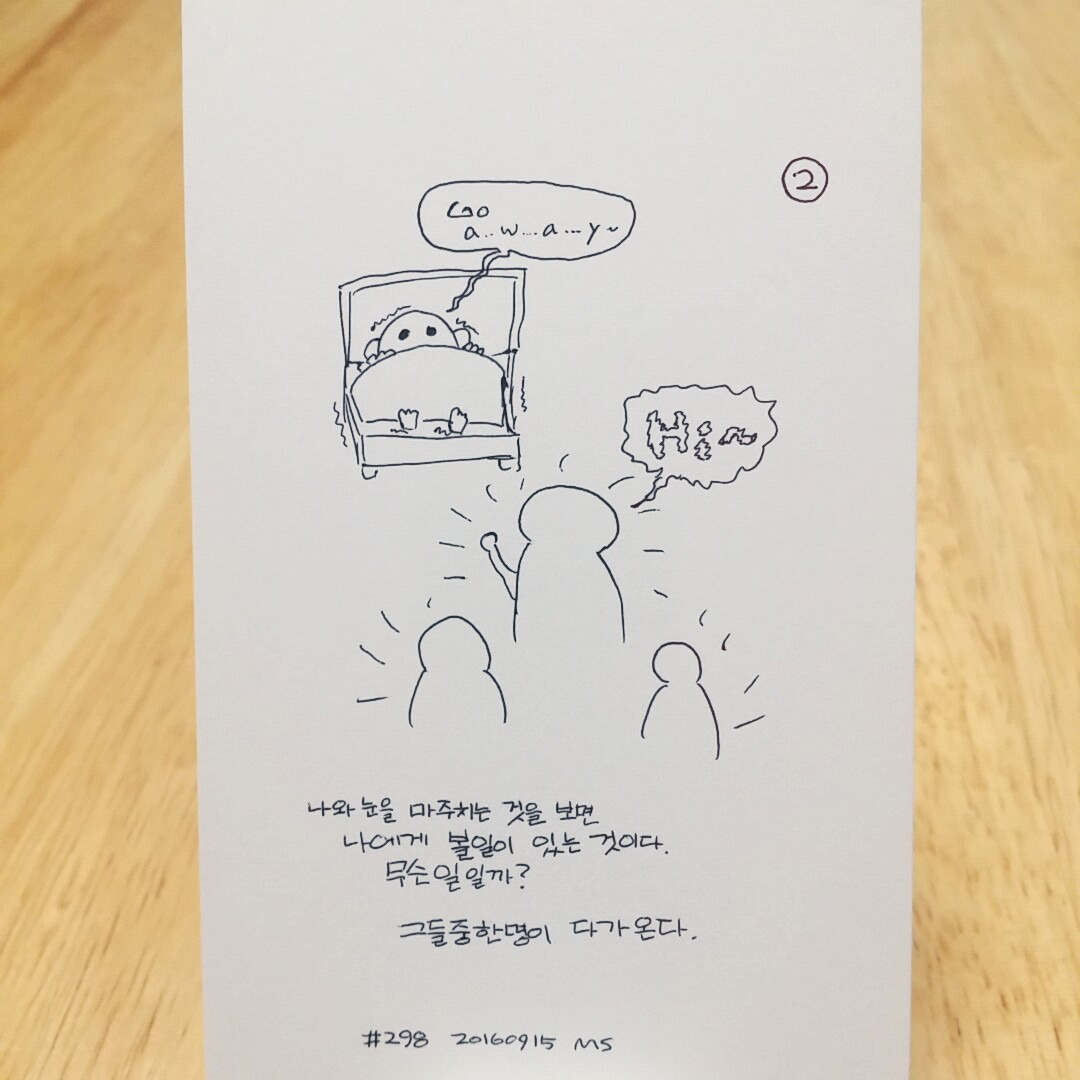 ②
Go
a..w...a...y~
Hi~
나와 눈을 마주치는 것을 보면
나에게 볼일이 있는 것이다.
무슨일일까?
그들중한명이 다가온다.
#298 20160915 MS